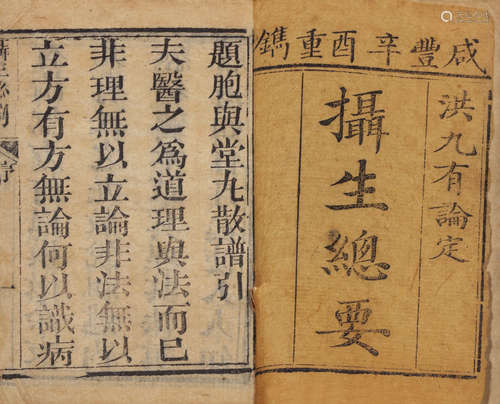 咸豐辛酉重鐫
洪九有論定
攝生總要
題胞與堂丸散譜引
夫醫之爲道理與法而已
非理無以立論非法無以
立方有方無論何以識病
序
一